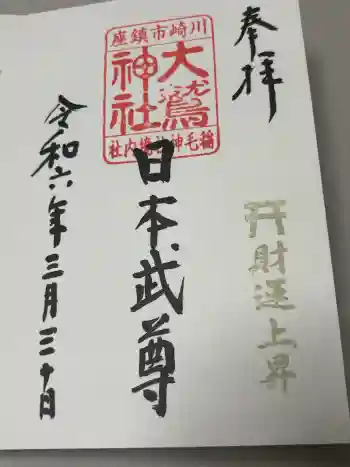 奉拝
川崎市鎮座
大鷲神社
稲毛神社境内社
日本武尊
财運上昇
令和六年三月三十日